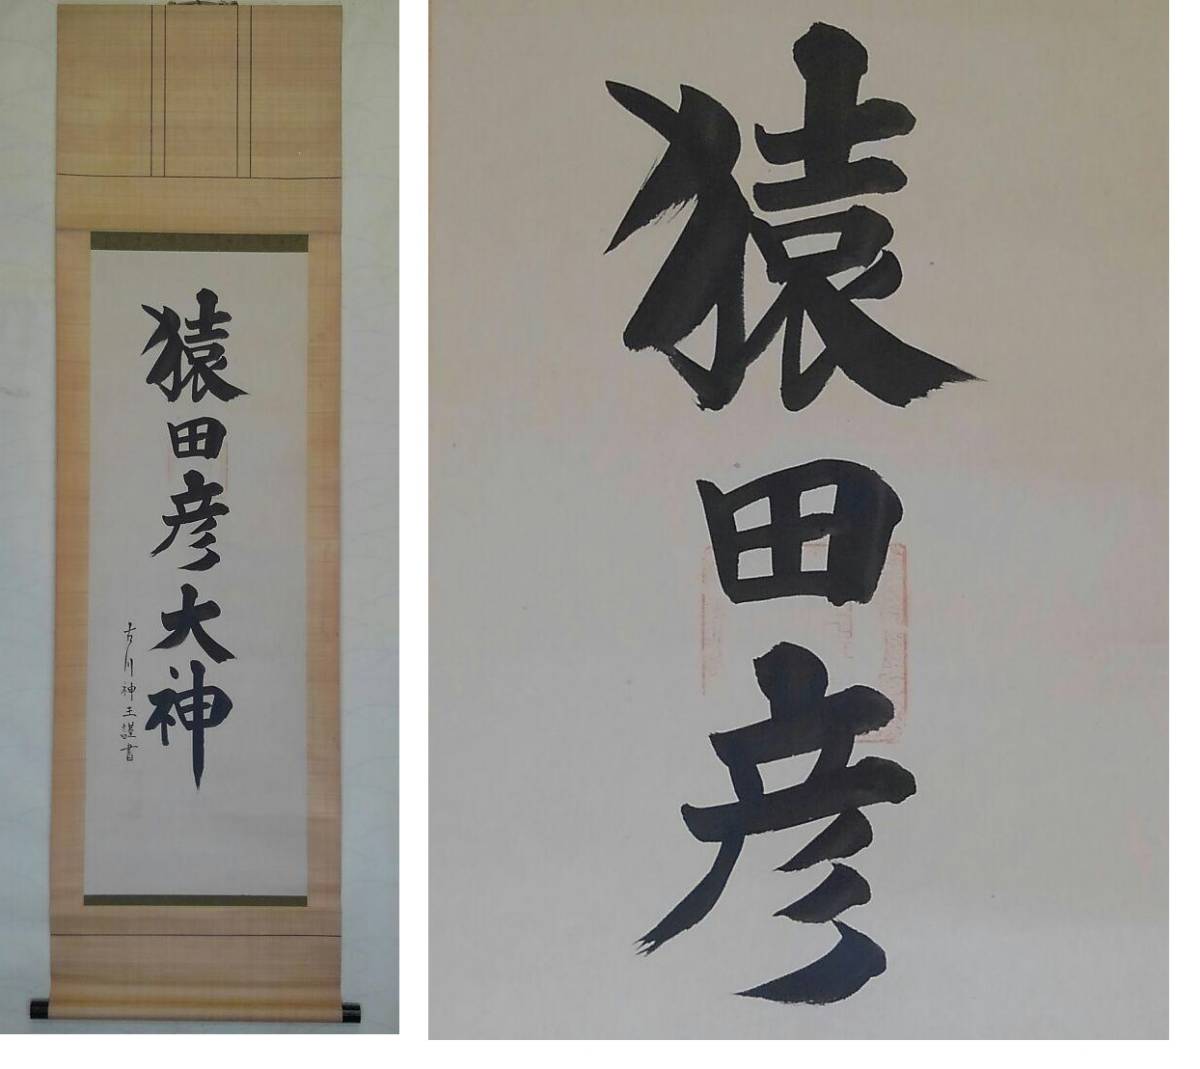 猿田彦大神
古川神主謹書
猿田彦